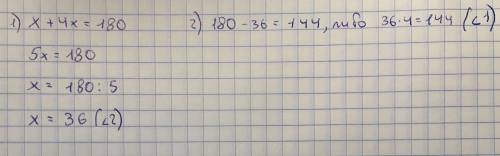 1) x + 4x = 180
5x = 180
x = 180 : 5
x = 36 (∠2)
2) 180 - 36 = 144, либо 36·4 = 144 (∠1)